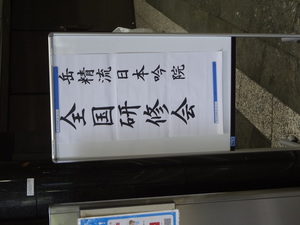 岳精流日本吟院
全国研修会